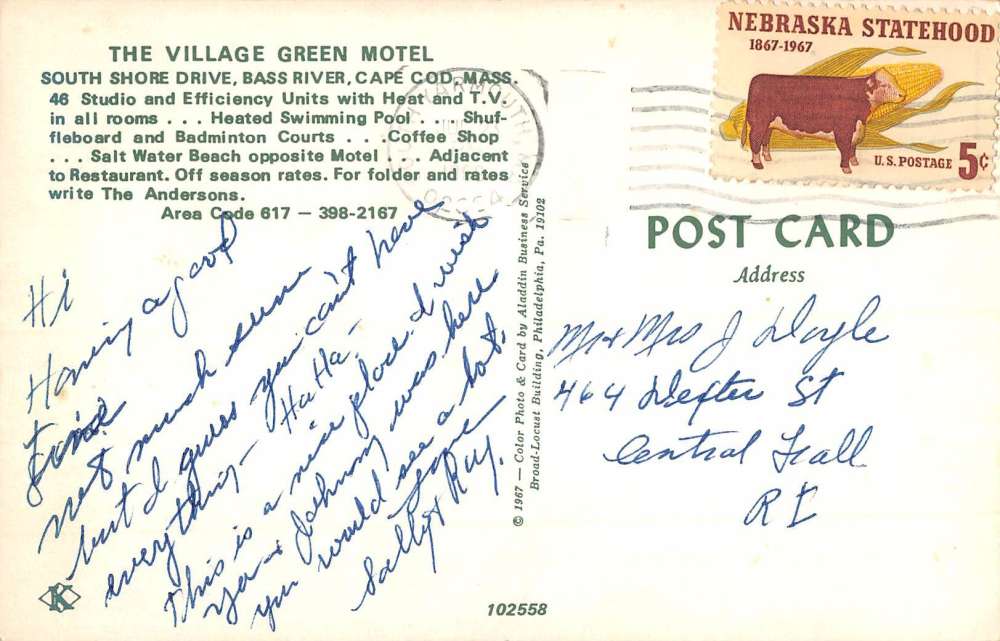 THE VILLAGE GREEN MOTEL
SOUTH SHORE DRIVE, BASS RIVER, CAPE COD, MASS.
46 Studio and Efficiency Units with Heat and T.V.
in all rooms . . . Heated Swimming Pool . . . Shuf-
fleboard and Badminton Courts . . . Coffee Shop
. . . Salt Water Beach opposite Motel . . . Adjacent
to Restaurant. Off season rates. For folder and rates
write The Andersons.
Area Code 617 — 398-2167
Hi
Having a good
time
not much sun
but I guess you can't have
everything - Ha Ha -
This is a nice place. I wish
you + Johnny was here
you would see a lot.
Love
Sally + Ray.
K
© 1967 — Color Photo & Card by Aladdin Business Service
Broad-Locust Building, Philadelphia, Pa. 19102
NEBRASKA STATEHOOD
1867-1967
U.S. POSTAGE 5¢
YARMOUTH
POST CARD
Address
Mr + Mrs J Doyle
464 Dexter St
Central Fall
RI
102558